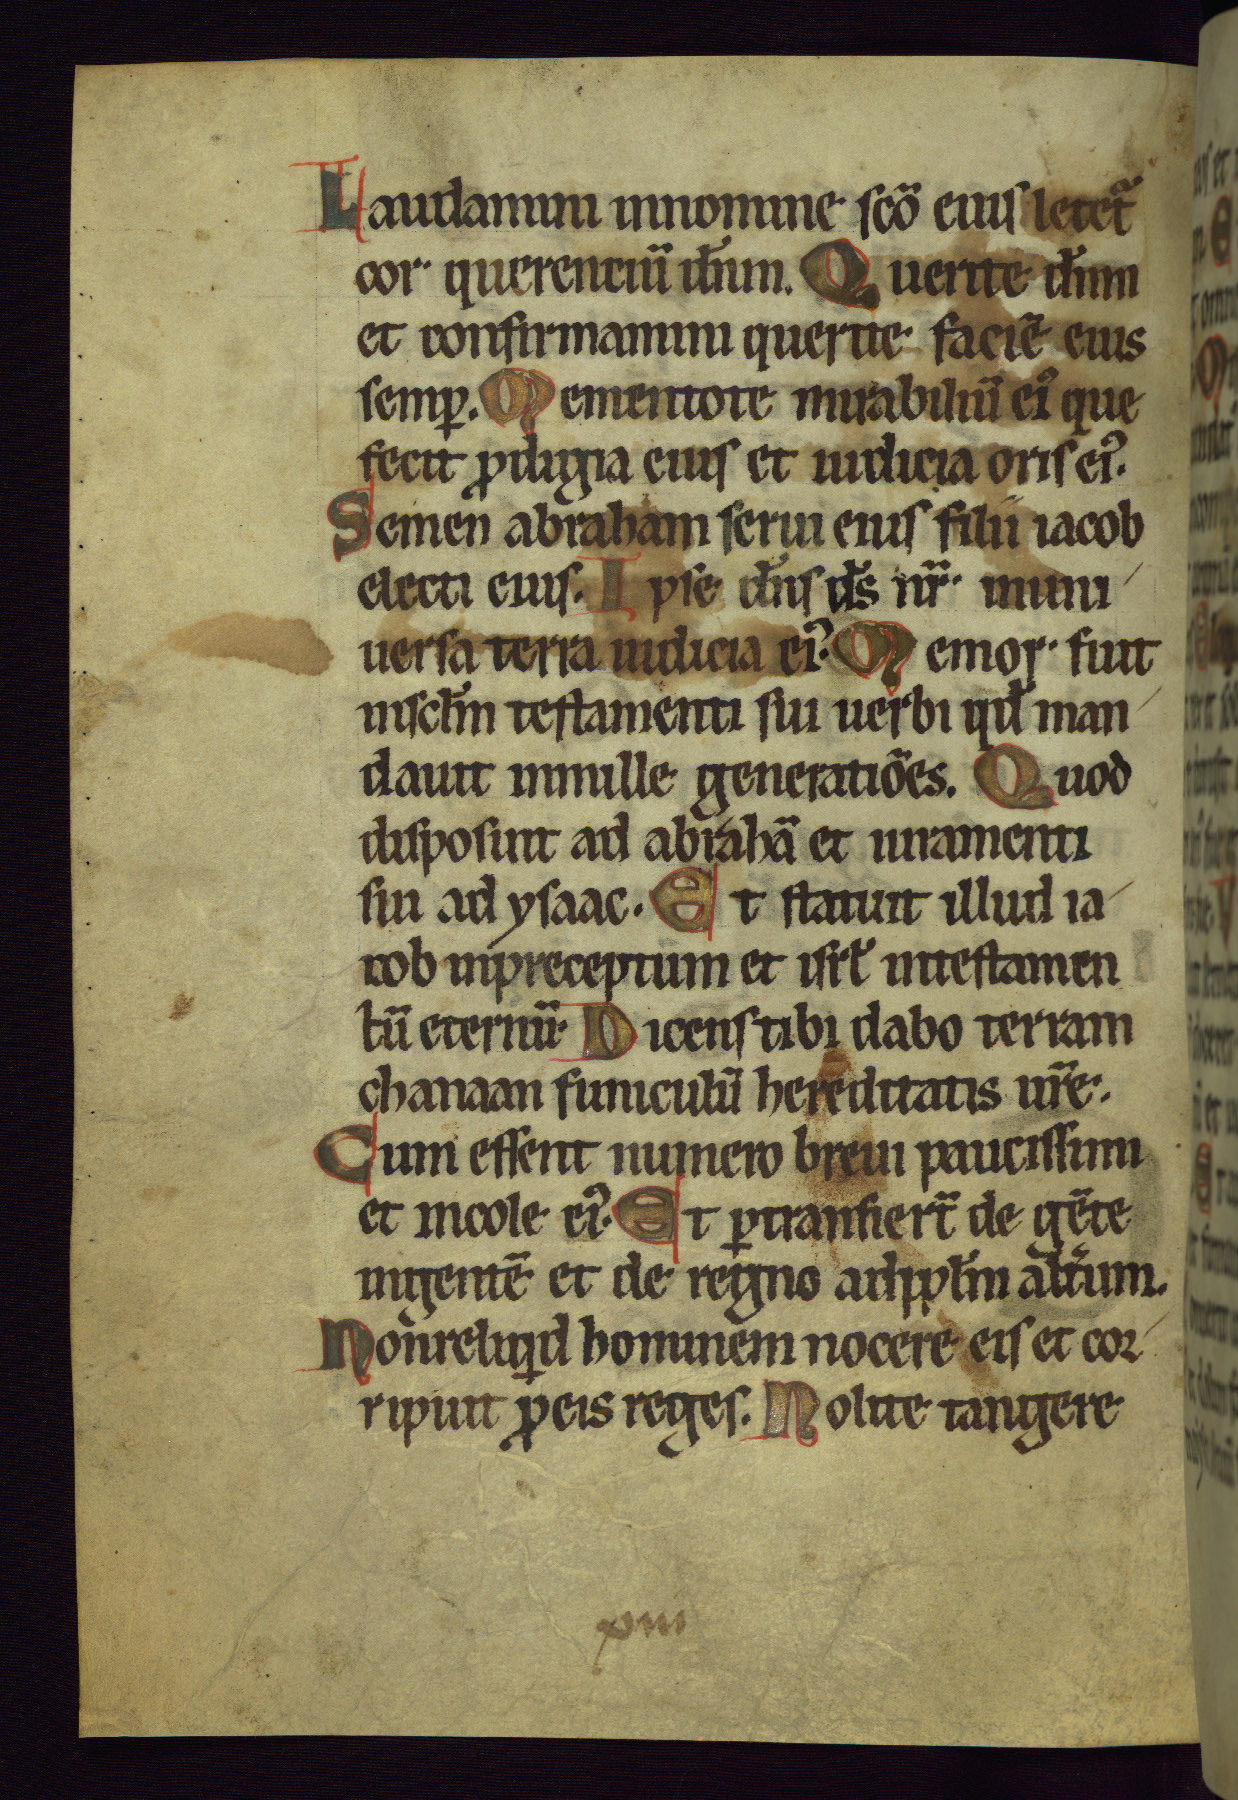 Laudamini innomine scõ eius letet᷑
cor querenciũ dñm. Querite dñm
et confirmamini querite faciẽ eius
semꝑ. Mementote mirabiliũ eiꝰ que
fecit ꝓdigia eius et iudicia oris eiꝰ.
Semen abraham serui eius filii iacob
electi eius. Ipse dñs ds̃ nr̃ inuni
uersa terra iudicia eiꝰ. Memor fuit
insclm̃ testamenti sui uerbi qd̃ man
dauit inmille generatiões. Quod
disposuit ad abrahã et iuramenti
sui ad ysaac. Et statuit illud ia
cob inpreceptum et isrl̃ intestamen
tũ eternũ. Dicens tibi dabo terram
chanaan funiculũ hereditatis ur̃e.
Cum essent numero breui paucissimi
et incole eiꝰ. Et ꝑtransiert̃ de gẽte
ingentẽ et de regno adpplm̃ alt̃um.
Non reliqͥd hominem nocere eis et cor
ripuit ꝓ eis reges. Nolite tangere
xiii